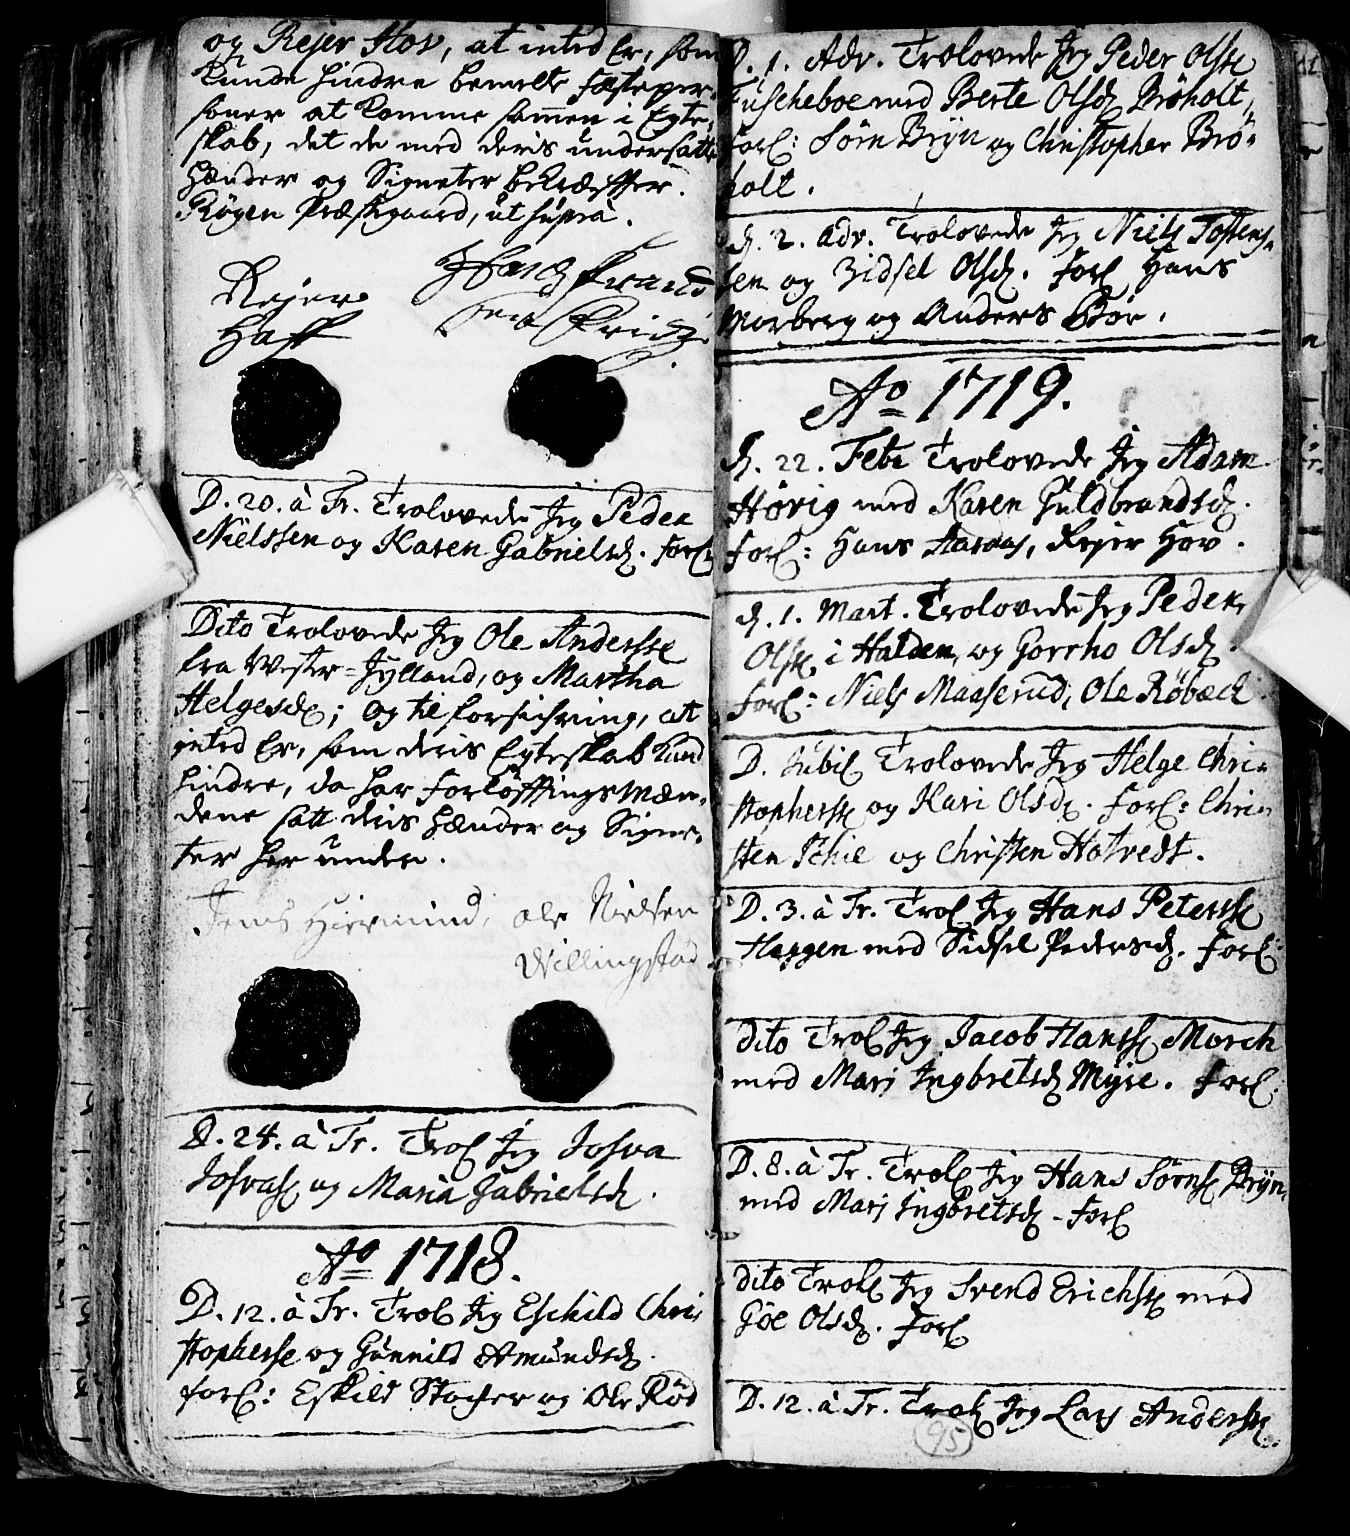 og Rejer Hov, at inted Er, som
kunde hindre bemelte fæsteper-
soner at komme sammen i Egte-
skab, det de med deris undersatte
hænder og Signeter bekræffter.
Røgen Præstegaard, ut supra.
Rejer
Haff
D. 20. à Tr. Trolovede Jeg Peder
Nielssen og Karen Gabrielsd. forl:
Dito Trolovede Jeg Ole Anderss
fra Wester-Jylland, og Martha
Helgesd; og til forsichring, at
inted Er, som deris Egteskab kand
hindre, da har forløfftingsmæn-
dene satt deris hænder og Signe-
ter her under.
Jens Hiermind, ole Nielsen
Willingstad
D. 24. à Tr. Trol Jeg Josva
Josvas og Maria Gabrielsd.
Ao 1718.
D. 12. à Tr. Trol Jeg Eschild Chri-
stopherss og Gunnild Amundsd.
forl: Eskild Stocker og Ole Rød
D. 1. Adv. Trolovede Jeg Peder Olss
Fuscheboe med Berte Olsd Brøholt,
forl: Sörn Bryn og Christopher Brø-
holt.
d. 2. Adv. Trolovede Jeg Niels Tostens-
sen og Zidsel Olsd. forl Hans
Morberg og Anders Bør.
Ao 1719.
d. 22. Febr Trolovede Jeg Adam
Hørig med Karen Guldbrandsd.
forl: Hans Aaraas, Rejer Hov.
d. 1. Mart. Trolovede Jeg Peder
Olss i Halden, og Gorrho Olsd.
forl: Niels Maaserud, Ole Røback.
D. Jubil Trolovede Jeg Helge Chri-
stopherss og Kari Olsd. forl: Chri-
sten Schie og Christen Hotvedt.
D. 3. à Tr. Trol Jeg Hans Peterss
Haggen med Sidsel Pedersd. forl:
dito Trol Jeg Jacob Hanss Morch
med Mari Ingbretsd Myre. forl:
D. 8. à Tr. Trol Jeg Hans Sörns Bryn
med Mari Ingbretsd - forl
dito Trol Jeg Svend Erichss med
Göe Olsd. forl
D. 12. à Tr. Trol Jeg Lars Anderss
95